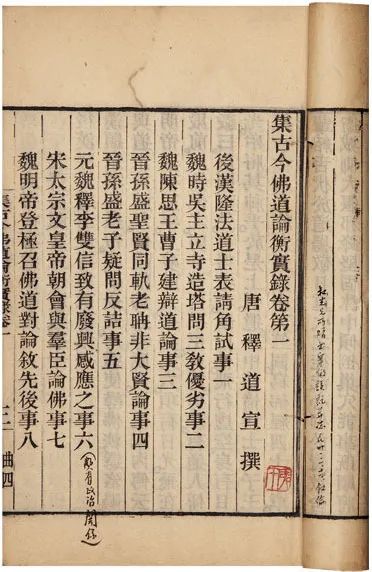 集古今佛道論衡實錄卷第一
唐釋道宣撰
後漢隆法道士表請角試事一
魏時吳主立寺造塔問三教優劣事二
魏陳思王曹子建辯道論事三
晉孫盛聖賢同軌老聃非大賢論事四
晉孫盛老子疑問反詰事五
元魏釋李雙信致有廢興感應之事六
（頗有政治關係）
宋太宗文皇帝朝會與羣臣論佛事七
魏明帝登極召佛道對論敘先後事八
集古今佛道論衡實錄卷一
曲四